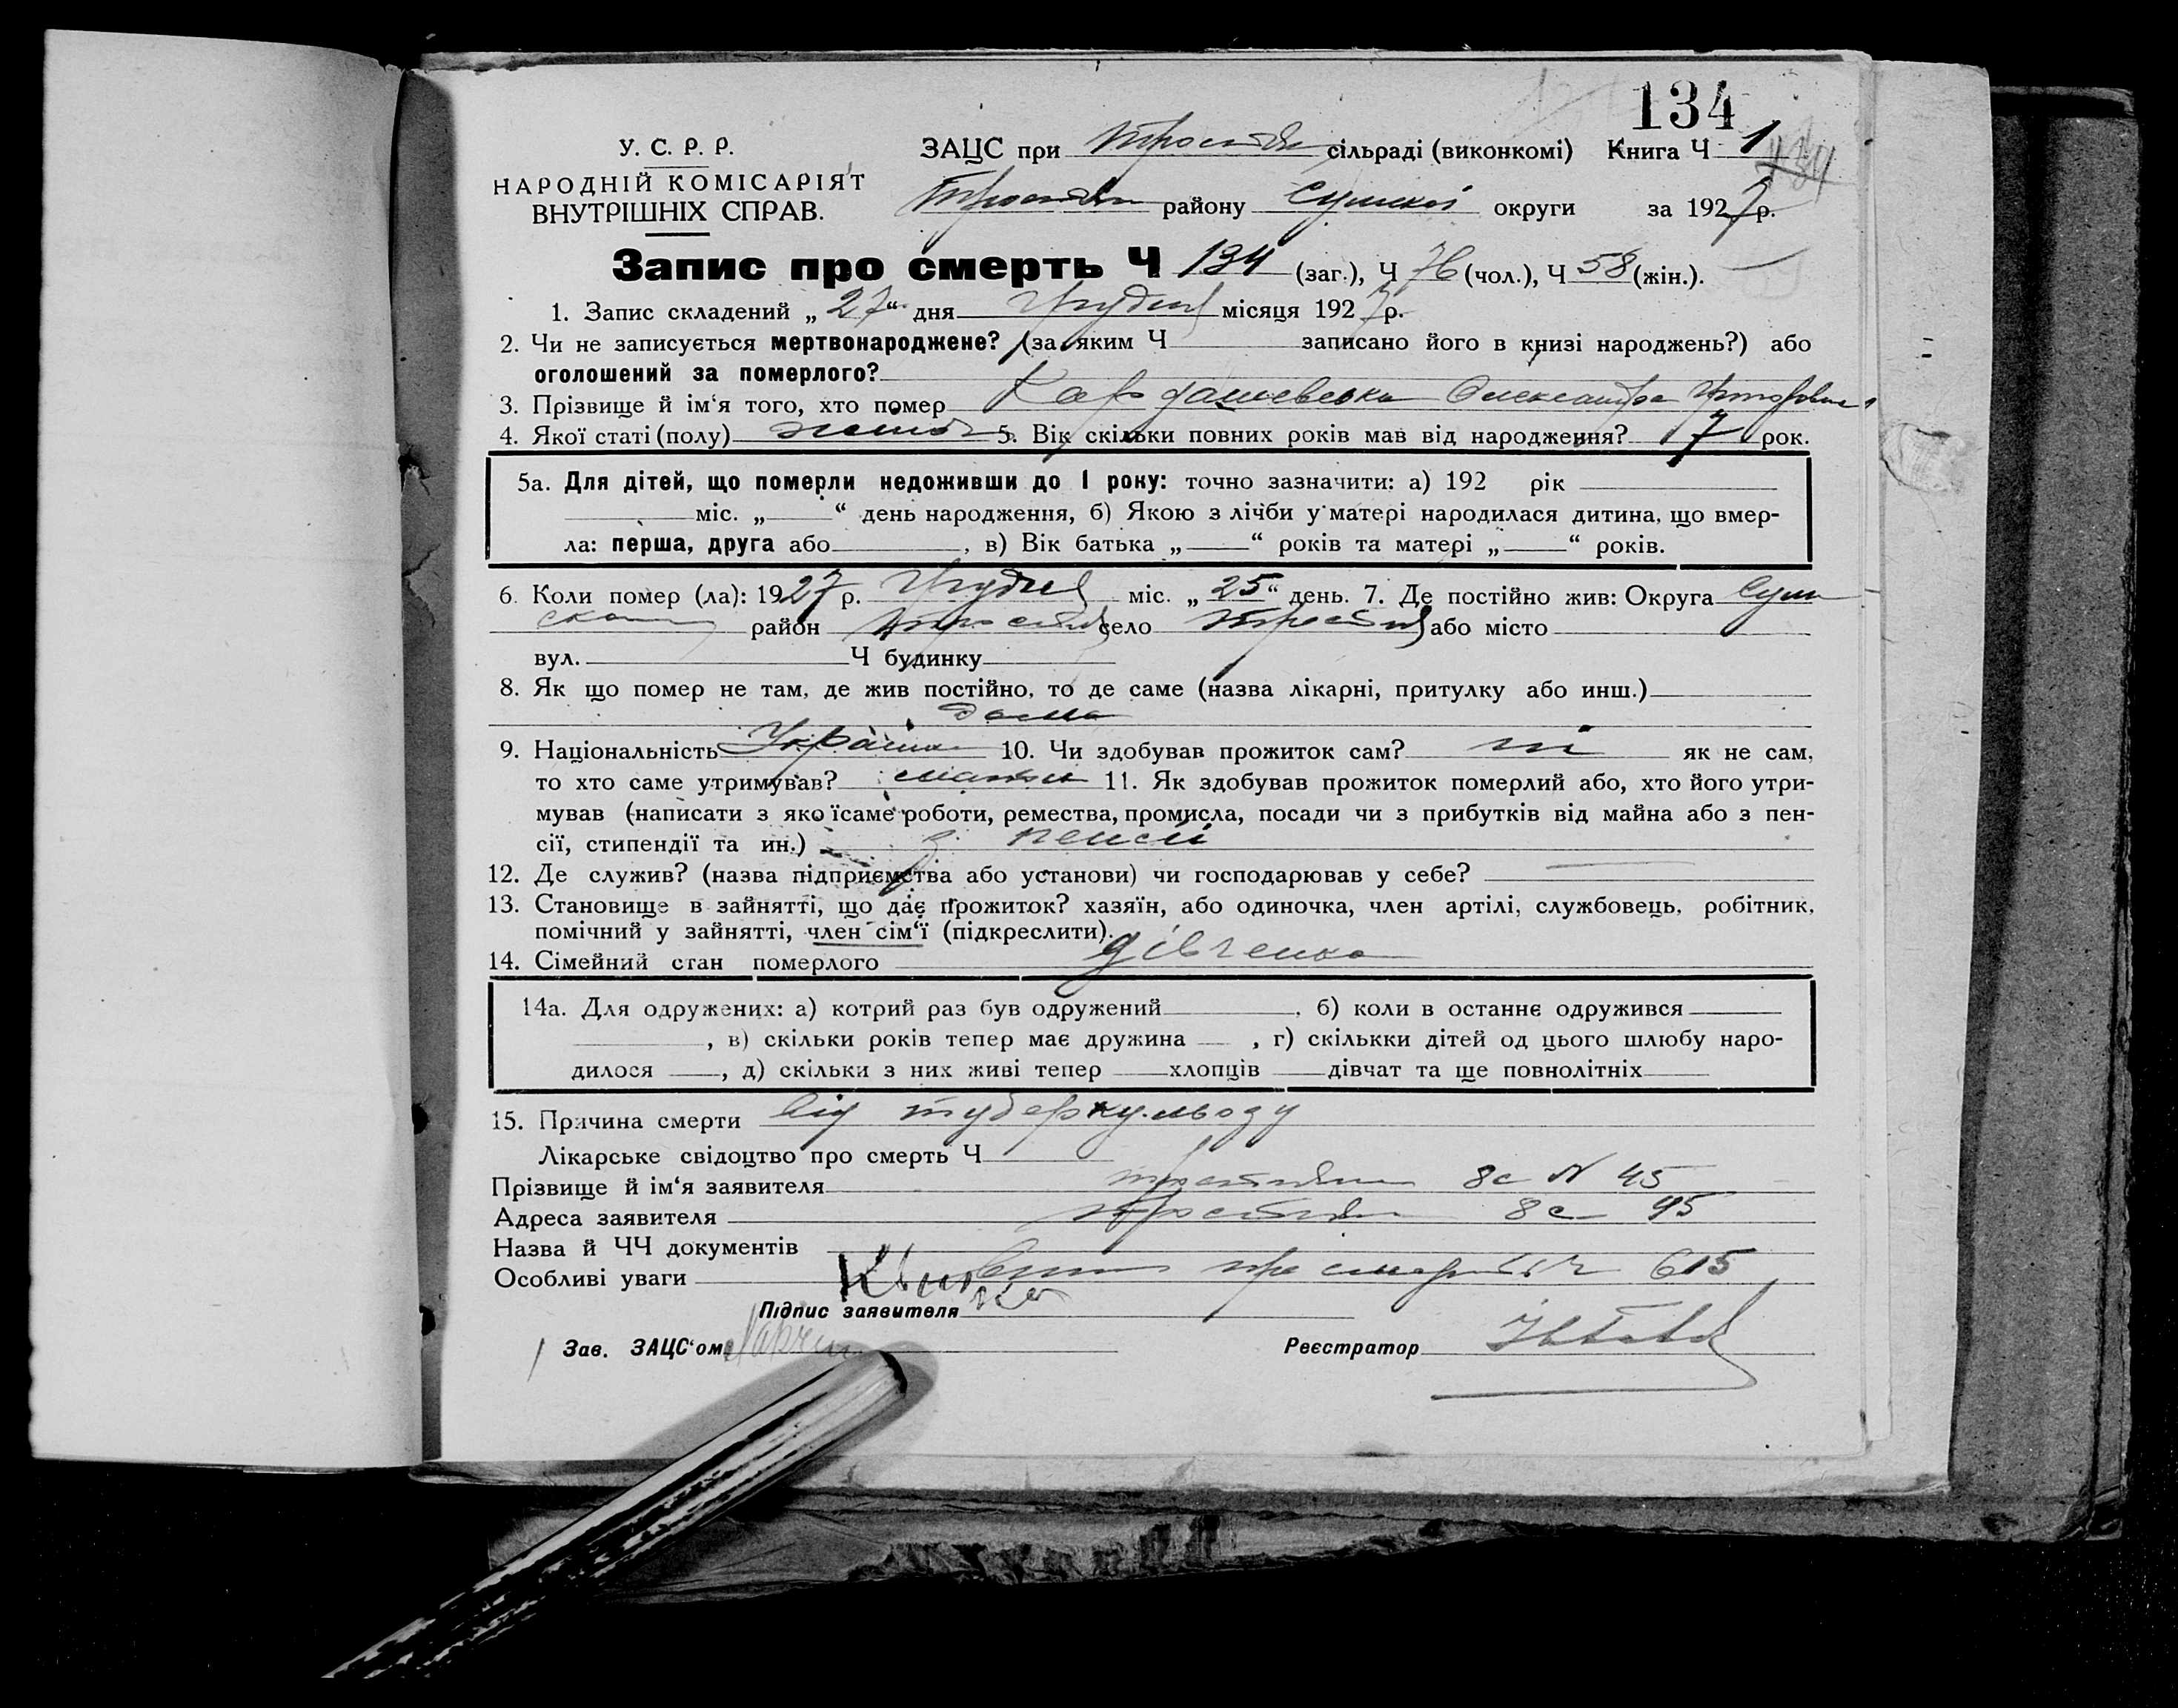 134
У. С. Р. Р.
НАРОДНІЙ КОМІСАРІЯТ
ВНУТРІШНІХ СПРАВ.
ЗАЦС при сільраді (виконкомі) Книга Ч 1
району Сумської округи за 1927 р.
Запис про смерть Ч 134 (заг.), Ч 76 (чол.), Ч 58 (жін.).
1. Запис складений „ 27 “ дня Грудня місяця 1927 р.
2. Чи не записується мертвонароджене? (за яким Ч записано його в книзі народжень?) або
оголошений за померлого?
3. Прізвище й ім‘я того, хто помер Кардашевська Олександра
4. Якої статі (полу) 5. Вік скільки повних років мав від народження? 7 рок.
5а. Для дітей, що померли недоживши до 1 року: точно зазначити: а) 192 рік
міс. „ “ день народження, б) Якою з лічби у матері народилася дитина, що вмер-
ла: перша, друга або , в) Вік батька „ “ років та матері „ “ років.
6. Коли помер (ла): 1927 р. Грудня міс. „ 25 “ день. 7. Де постійно жив: Округа Сум
ська район село або місто
вул. Ч будинку
8. Як що помер не там, де жив постійно, то де саме (назва лікарні, притулку або инш.)
дома
9. Національність Українка 10. Чи здобував прожиток сам? ні як не сам,
то хто саме утримував? 11. Як здобував прожиток померлий або, хто його утри-
мував (написати з якоїсаме роботи, ремества, промисла, посади чи з прибутків від майна або з пен-
сії, стипендії та ин.) з пенсії
12. Де служив? (назва підприємства або установи) чи господарював у себе?
13. Становище в зайнятті, що дає прожиток? хазяїн, або одиночка, член артілі, службовець, робітник,
помічний у зайнятті, член сім‘ї (підкреслити).
14. Сімейний стан померлого дівченка
14а. Для одружених: а) котрий раз був одружений , б) коли в останнє одружився
, в) скільки років тепер має дружина , г) скількки дітей од цього шлюбу наро-
дилося , д) скільки з них живі тепер хлопців дівчат та ще повнолітніх
15. Причина смерти від туберкульозу
Лікарське свідоцтво про смерть Ч
Прізвище й ім‘я заявителя 8с N 45
Адреса заявителя 8с 45
Назва й ЧЧ документів
Особливі уваги про смерть Ч 615
Підпис заявителя
Зав. ЗАЦС‘ом
Реєстратор